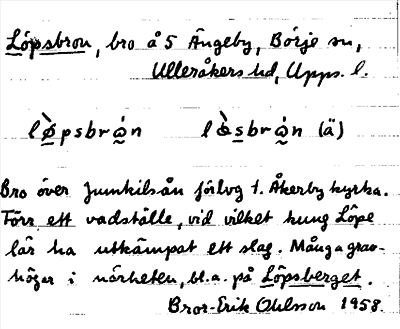 Löpsbron, bro å 5 Ängeby, Börje sn,
Ulleråkers hd, Upps. l.
lø̀psbrώ̣n lὼsbrώ̣n (ä)
Bro över Jumkilsån förbvg t. Åkerby kyrka.
Förr ett vadställe, vid vilket kung Löpe
lär ha utkämpat ett slag. Många grav-
högar i närheten, bl.a. på Löpsberget.
Bror-Erik Ohlsson 1958.